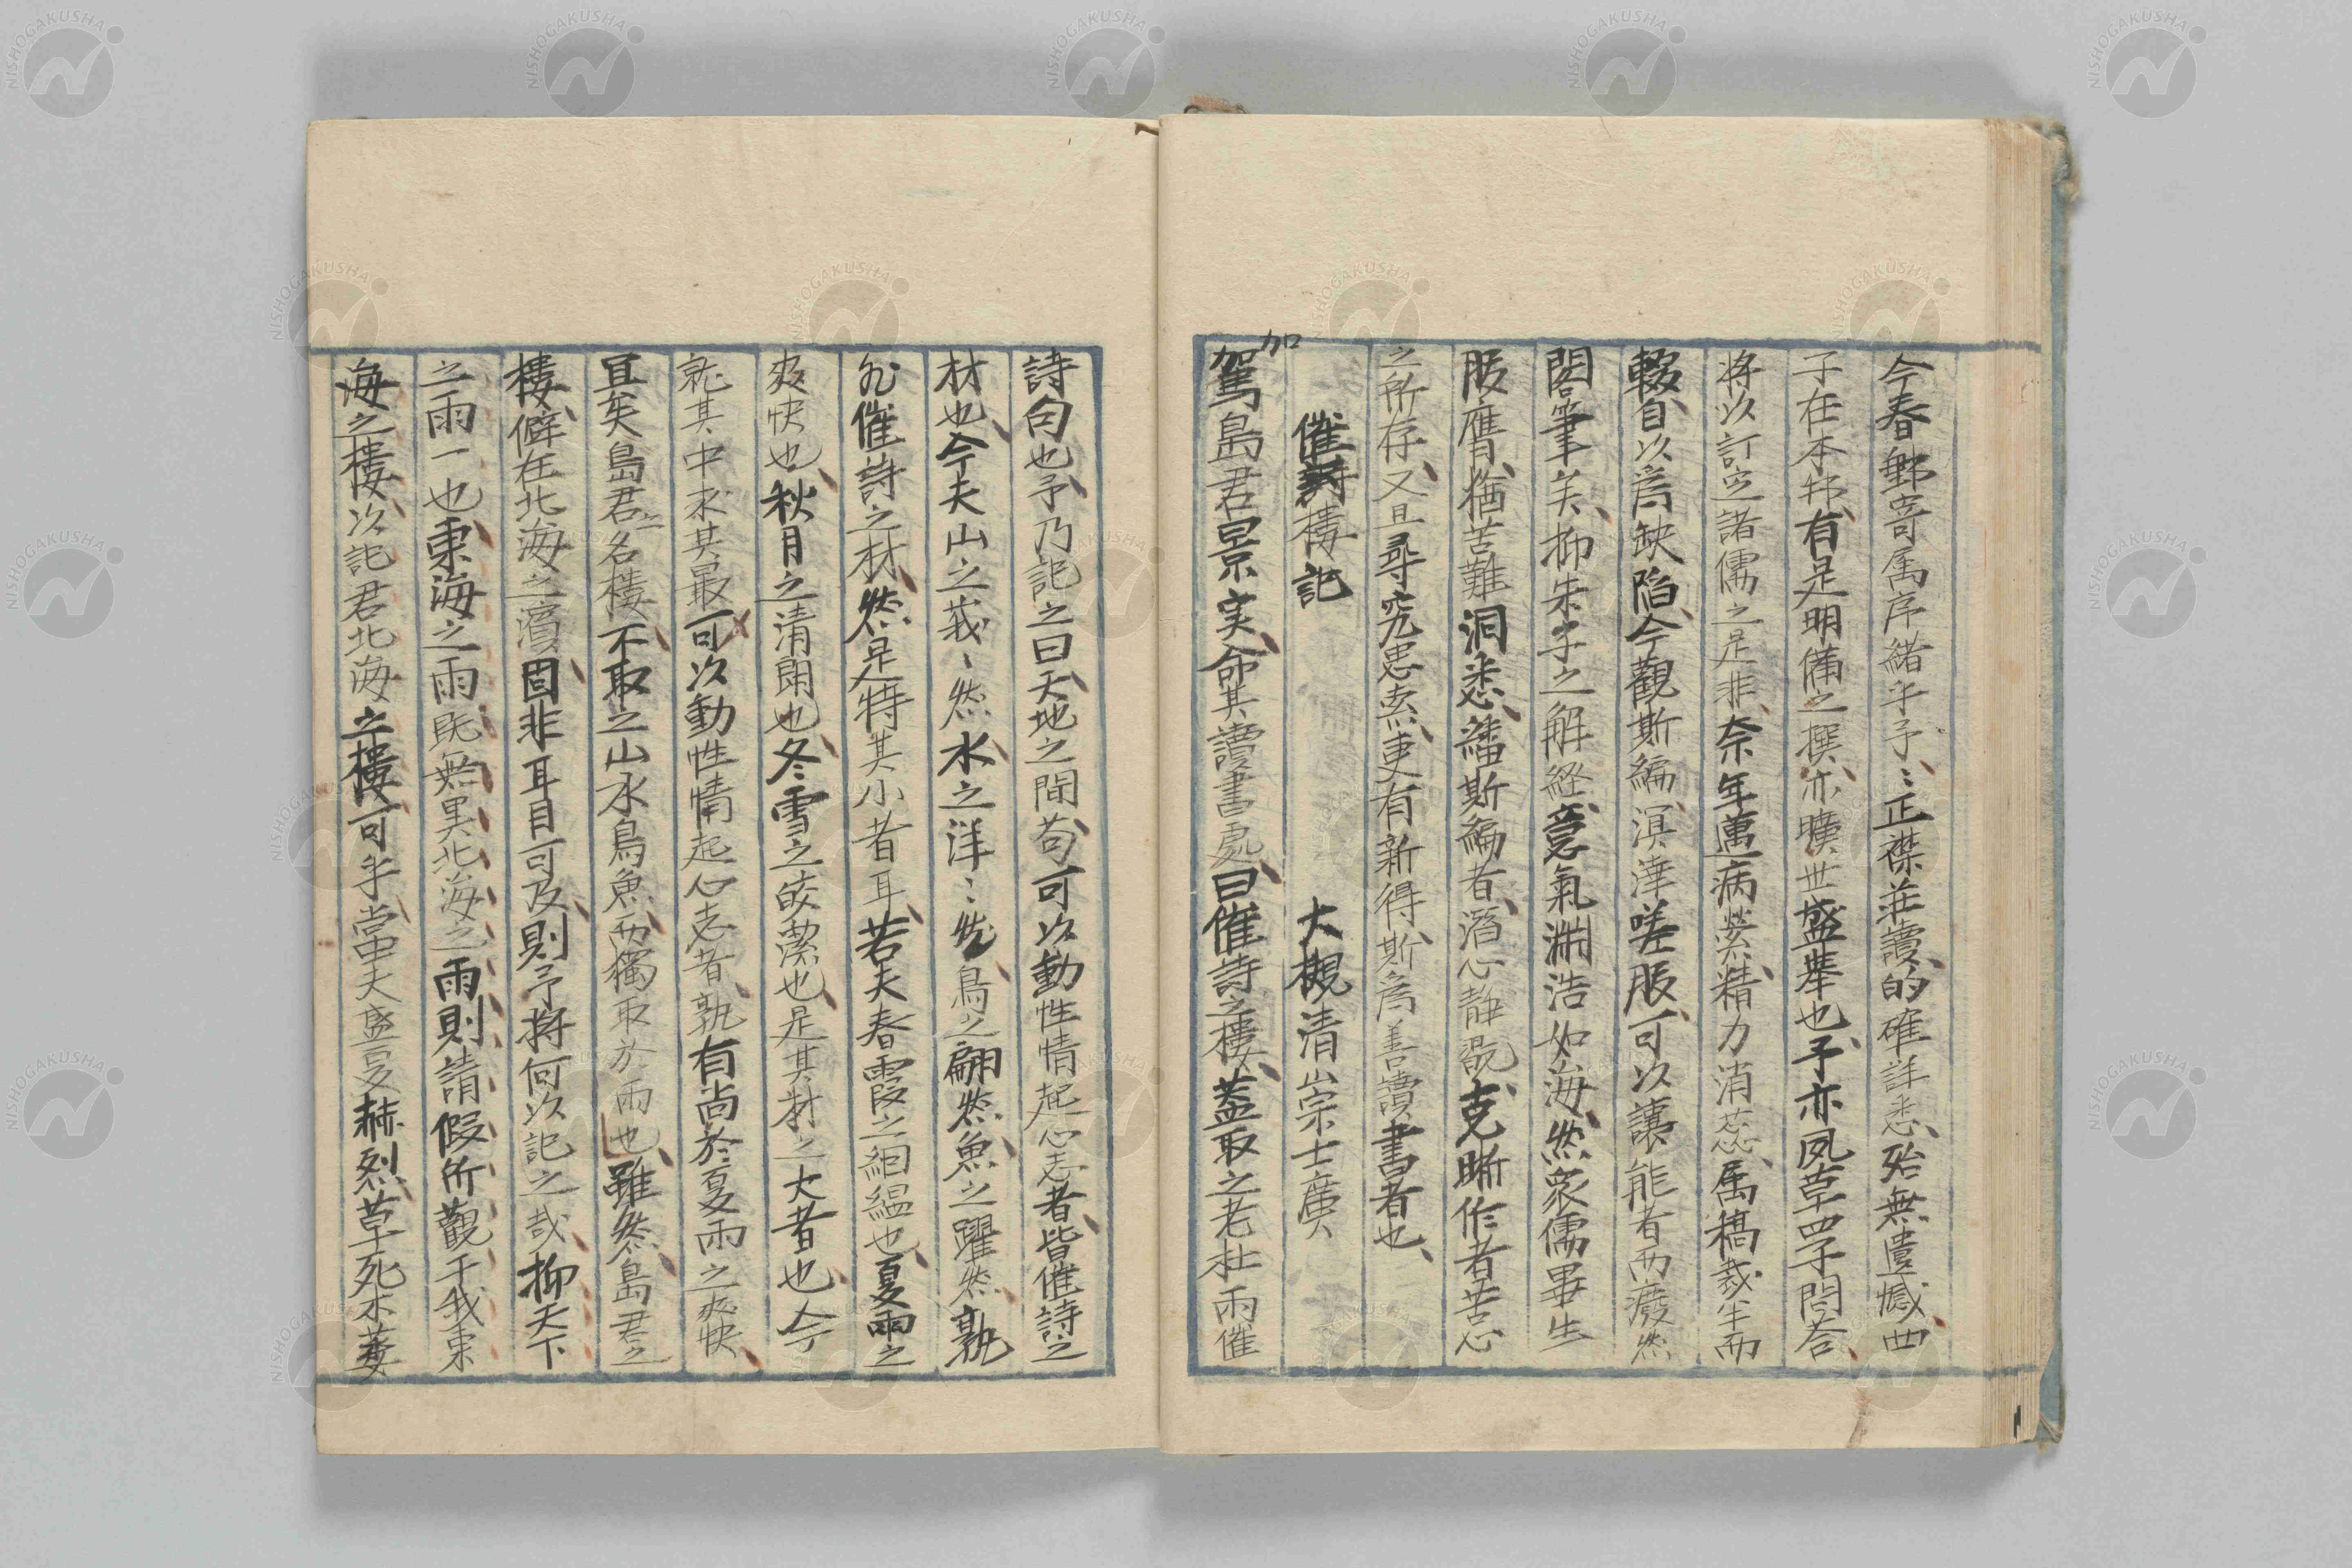 今春郵寄属序緒乎予〻正襟荘讀的確詳悉殆無遺憾西
子在本邦有是明備之撰亦曠世盛擧也予亦夙草四子問答
将以訂定諸儒之是非奈年邁病縈精力消蕊属稿裁半而
輟自以爲缺陥今觀斯編溟涬嗟服可以讓能者而癈然
閣筆矣抑朱子之解経意氣淵浩如海然衆儒畢生
服膺猶苦難洞悉繙斯編者潛心静翫克晰作者苦心
之所存又且尋究思索更有新得斯爲善讀書者也
催詩樓記 大槻清崇士廣
加
駕島君景実命其讀書處曰催詩之樓蓋取之老杜雨催
詩句也予乃記之曰天地之間苟可以動性情起心志者皆催詩之
材也今夫山之莪〻然水之洋〻然鳥之翩然魚之躍然孰
非催詩之材然是特其小者耳若夫春霞之絪縕也夏雨之
爽快也秋月之清朗也冬雪之皎潔也是其材之大者也今
就其中求其最可以動性情起心志者孰有尚於夏雨之爽快
且矣島君之名樓不取之山水鳥魚而獨取於雨也雖然島君之
樓僻在北海之濱固非耳目可及則予将何以記之哉抑天下
之雨一也東海之雨既無異北海之雨則請假所觀于我東
海之樓以記君北海之樓可乎當夫盛夏赫烈草死木萎